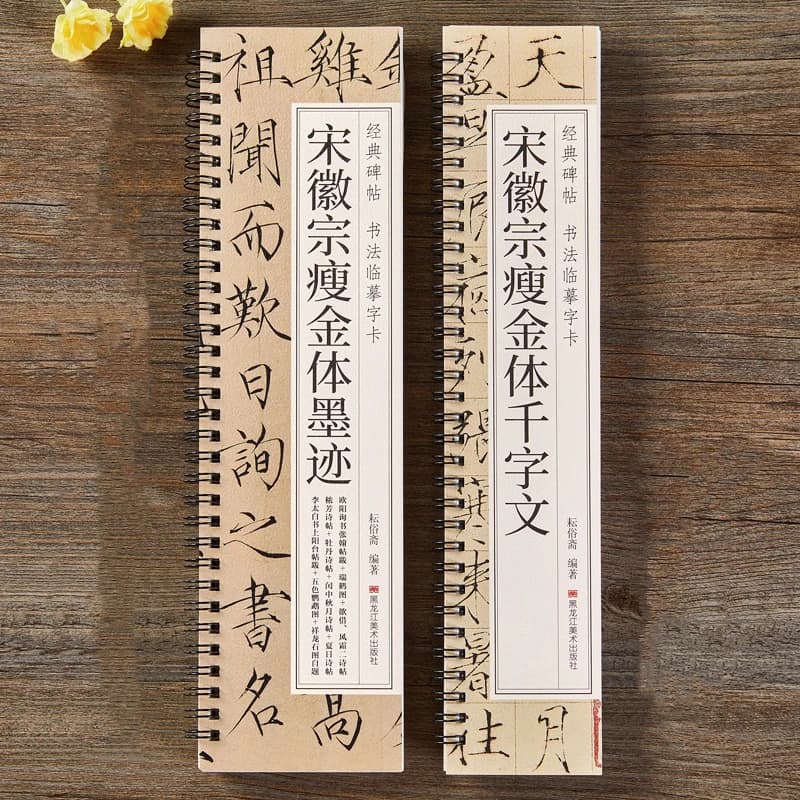 经典碑帖 书法临摹字卡
宋徽宗瘦金体墨迹
欧阳询书张翰帖跋+瑞鹤图+欲借、风霜二诗帖
秾芳诗帖+牡丹诗帖+闰中秋月诗帖+夏日诗帖
李太白书上阳台帖跋+五色鹦鹉图+祥龙石图自题
耘俗斋 编著
黑龙江美术出版社
雞
高
祖聞而歎曰詢之書名
经典碑帖 书法临摹字卡
宋徽宗瘦金体千字文
耘俗斋 编著
黑龙江美术出版社
天
月
盈昃辰宿列張寒來暑往